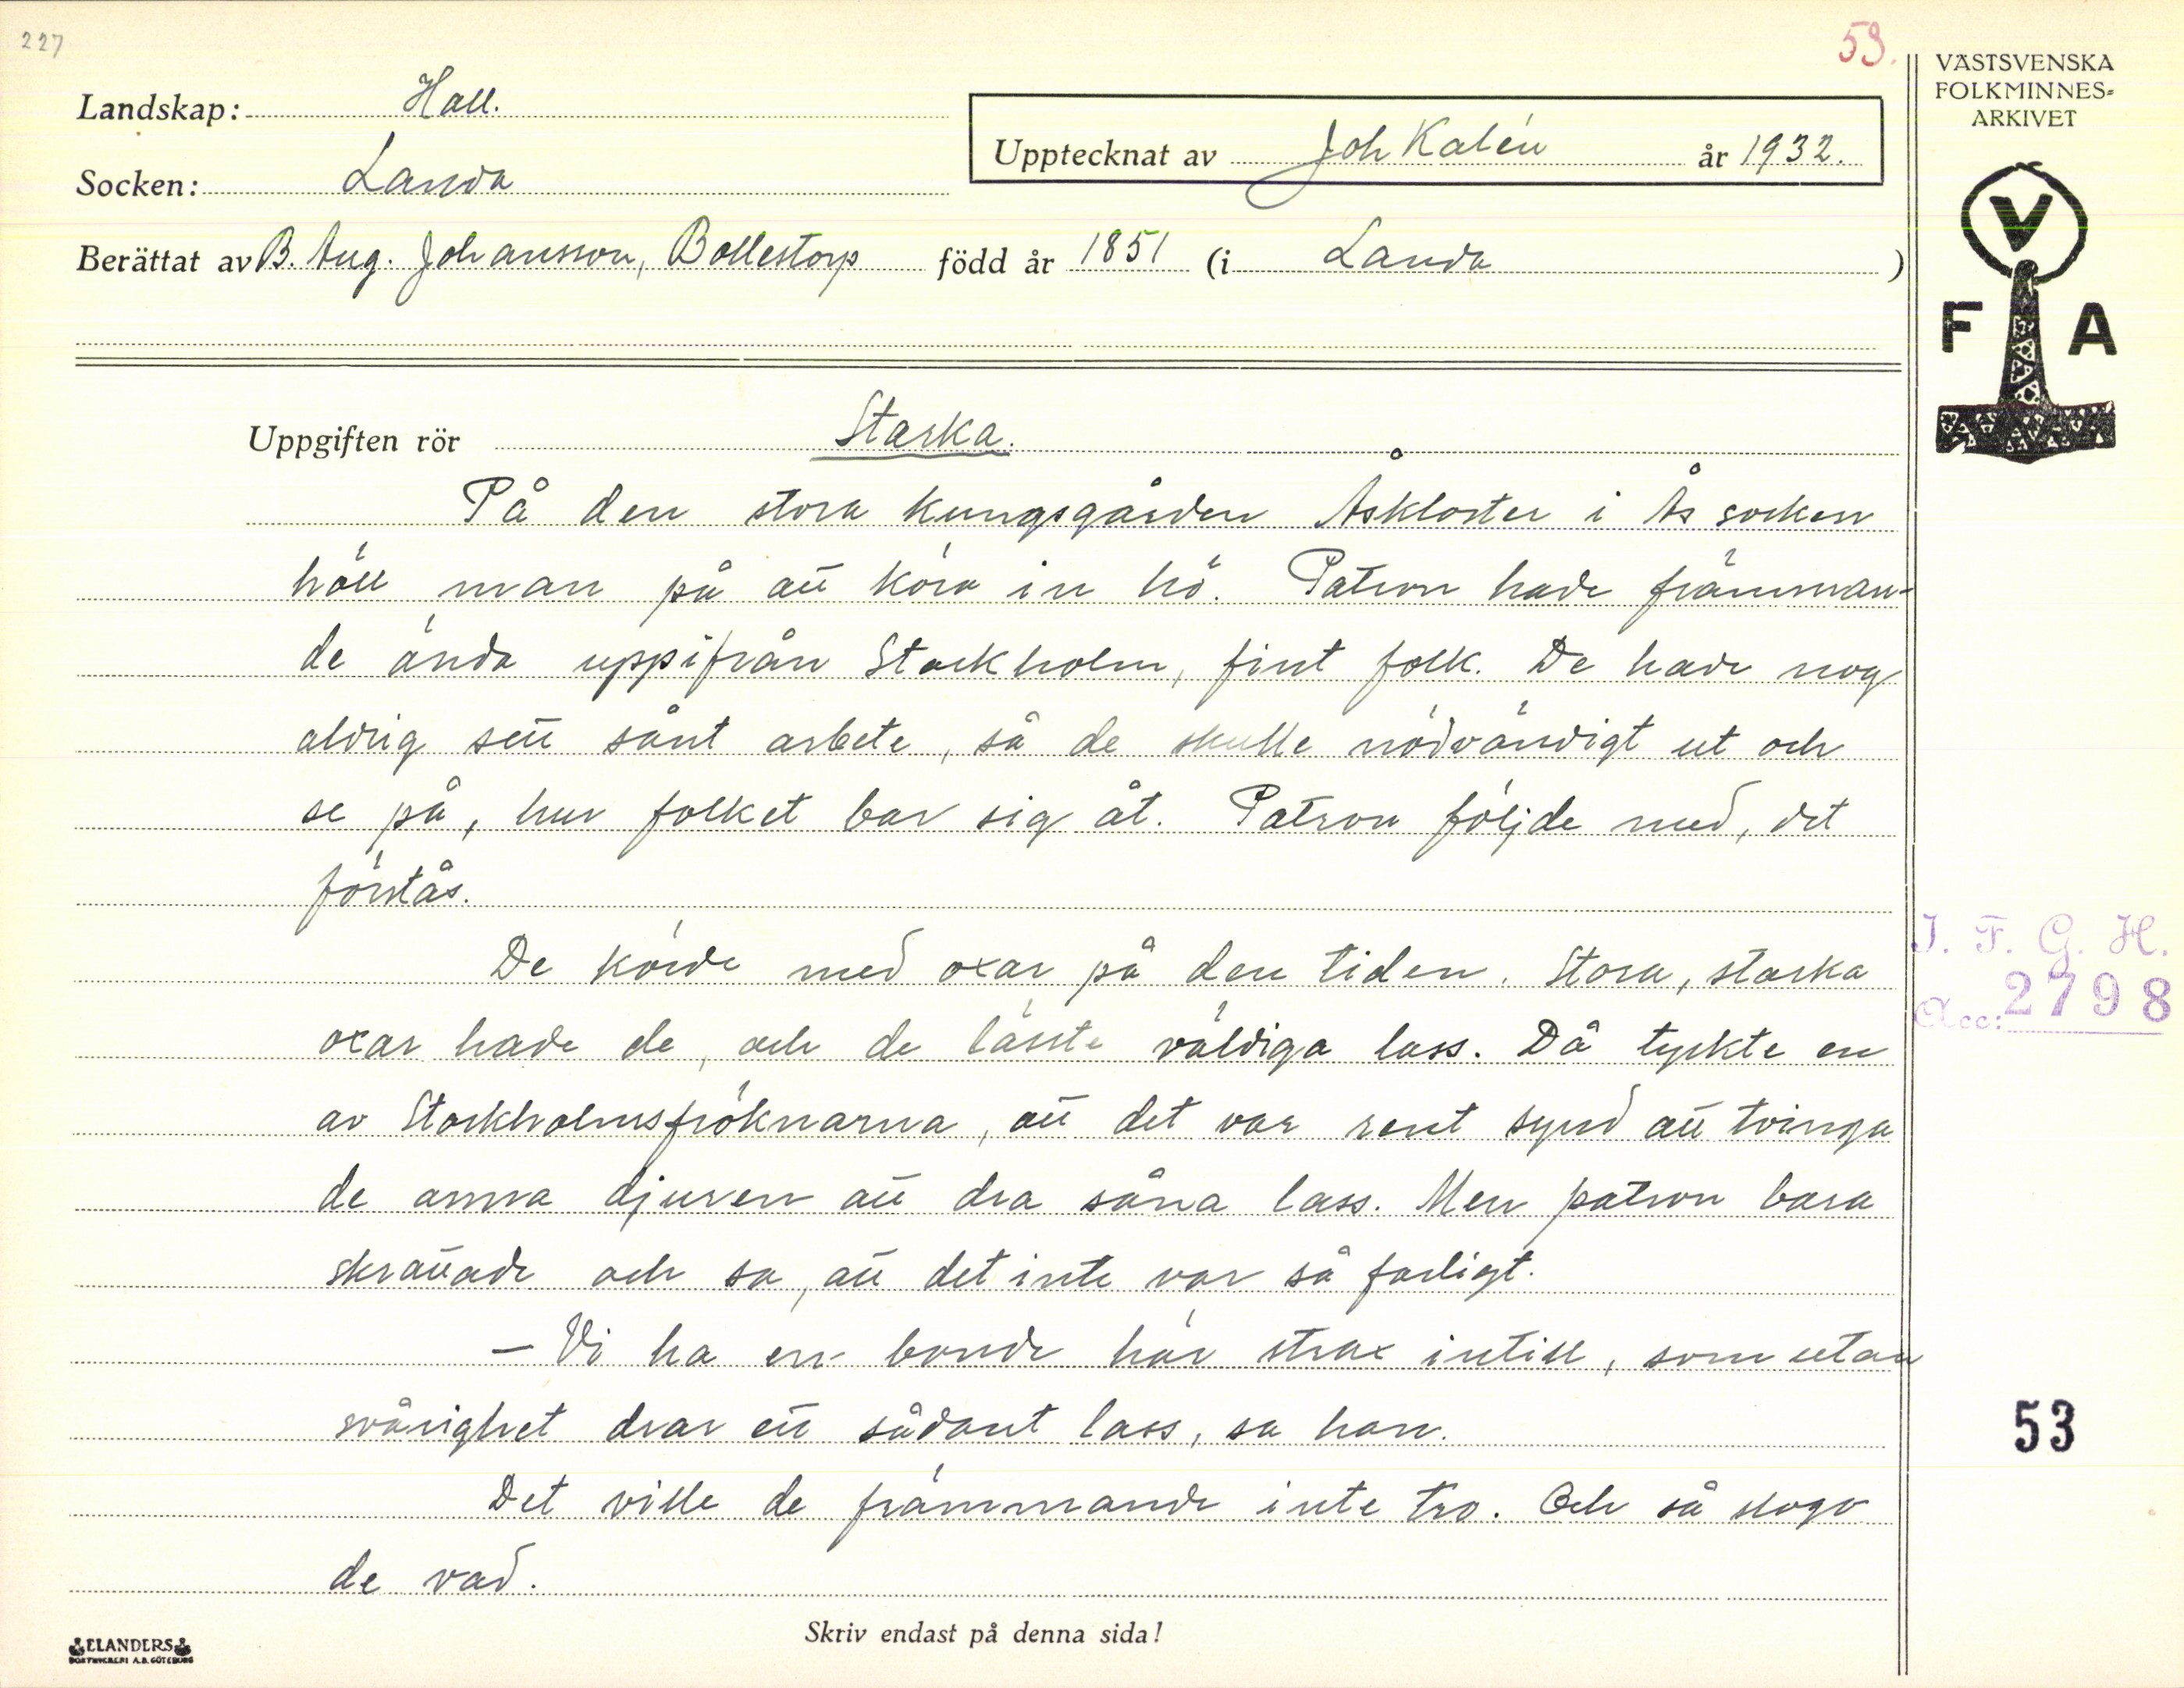 227
53.
Landskap: Hall.
Socken: Landa
Upptecknat av Joh Kalén år 1932.
Berättat av B. Aug. Johansson, Bollestorp född år 1851 (i Landa )
VÄSTSVENSKA
FOLKMINNES-
ARKIVET
V
F A
Uppgiften rör Starka.
På den stora kungsgården Åskloster i Ås socken
höll man på att köra in hö. Patron hade främman-
de ända uppifrån Stockholm, fint folk. De hade nog
aldrig sett sånt arbete, så de skulle nödvändigt ut och
se på, hur folket bar sig åt. Patron följde med, det
förstås.
De körde med oxar på den tiden. Stora, starka
oxar hade de, och de lasste väldiga lass. Då tyckte en
av Stockholmsfröknarna, att det var rent synd att tvinga
de arma djuren att dra såna lass. Men patron bara
skrattade och sa, att det inte var så farligt.
— Vi ha en bonde här strax intill, som utan
svårighet drar ett sådant lass, sa han.
Det ville de främmande inte tro. Och så slogo
de vad.
I. F. G. H.
Acc: 2798
53
Skriv endast på denna sida!
ELANDERS
BOKTRYCKERI A.B. GÖTEBORG